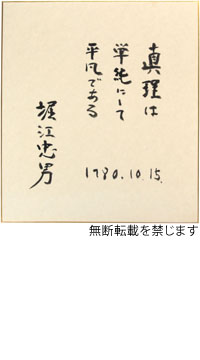 真理は
単純にして
平凡である
1980.10.15.
堀江忠男
無断転載を禁じます